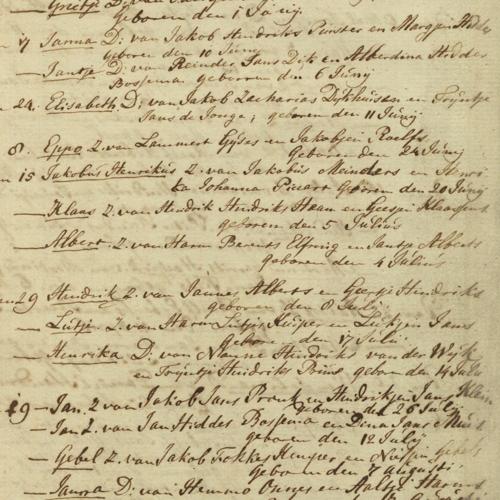 Grietje D: van
geboren den 1 Junij.
17 Janna D: van Jakob Hendriks Punster en Margjen Hidde
geboren den 10 Junij
— Jantje D: van Reinder Jans Dijk en Alberdina Hidder
Bossema geboren den 6 Junij
24. Elisabeth D; van Jakob Zacharias Dijkhuisen en Trijntje
Jans de Jonge; geboren den 11 Junij
8. Eppo Z. van Lammert Gijses en Jakobjen Roelfs
Geboren den 24 Junij
en 15 Jakobus Henrikus Z. van Jakobus Meinders en Henri
ka Johanna Picart geboren den 20 Junij
— Klaas Z. van Hendrik Hendriks Haan en Geesjen Klaassens
geboren den 5 Julius
— Albert Z. van Harm Berents Elfring en Jantje Alberts
geboren den 4 Julius
en 29 Hendrik Z. van Jannes Alberts en Geesje Hendriks
geboren den 8 Julij
— Luitjen Z. van Harm Luitjes Kuiper en Luktjen Jans
Geboren den 17 Julij.
— Henrika D: van Nanne Hindriks van der Wijk
en Trijntje Hindriks Prins geboren den 14 Julij
19 — Jan. Z van Jakob Jans Pronk en Hindrikjen Jans Klein
geboren den 26 Julij
— Jan Z. van Jan Hiddes Bossema en Dina Jans Mulder
geboren den 12 Julij
— Gebel Z. van Jakob Fokkes Kemper en
geboren den 7 Augustij
— Janna D: van Hemmo Onnes en Aaltje Harms